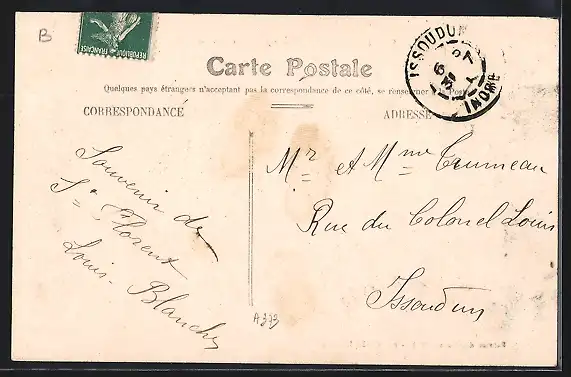 B
RÉPUBLIQUE FRANÇAISE
ISSOUDUN
INDRE
Carte Postale
Quelques pays étrangers n'acceptent pas la correspondance de ce côté, se renseigner à la Poste
CORRESPONDANCE
ADRESSE
Souvenir de
St Florent
Louis Blanche
Mr et Mme Crumeau
Rue du Colonel Louis
Issoudun
A373